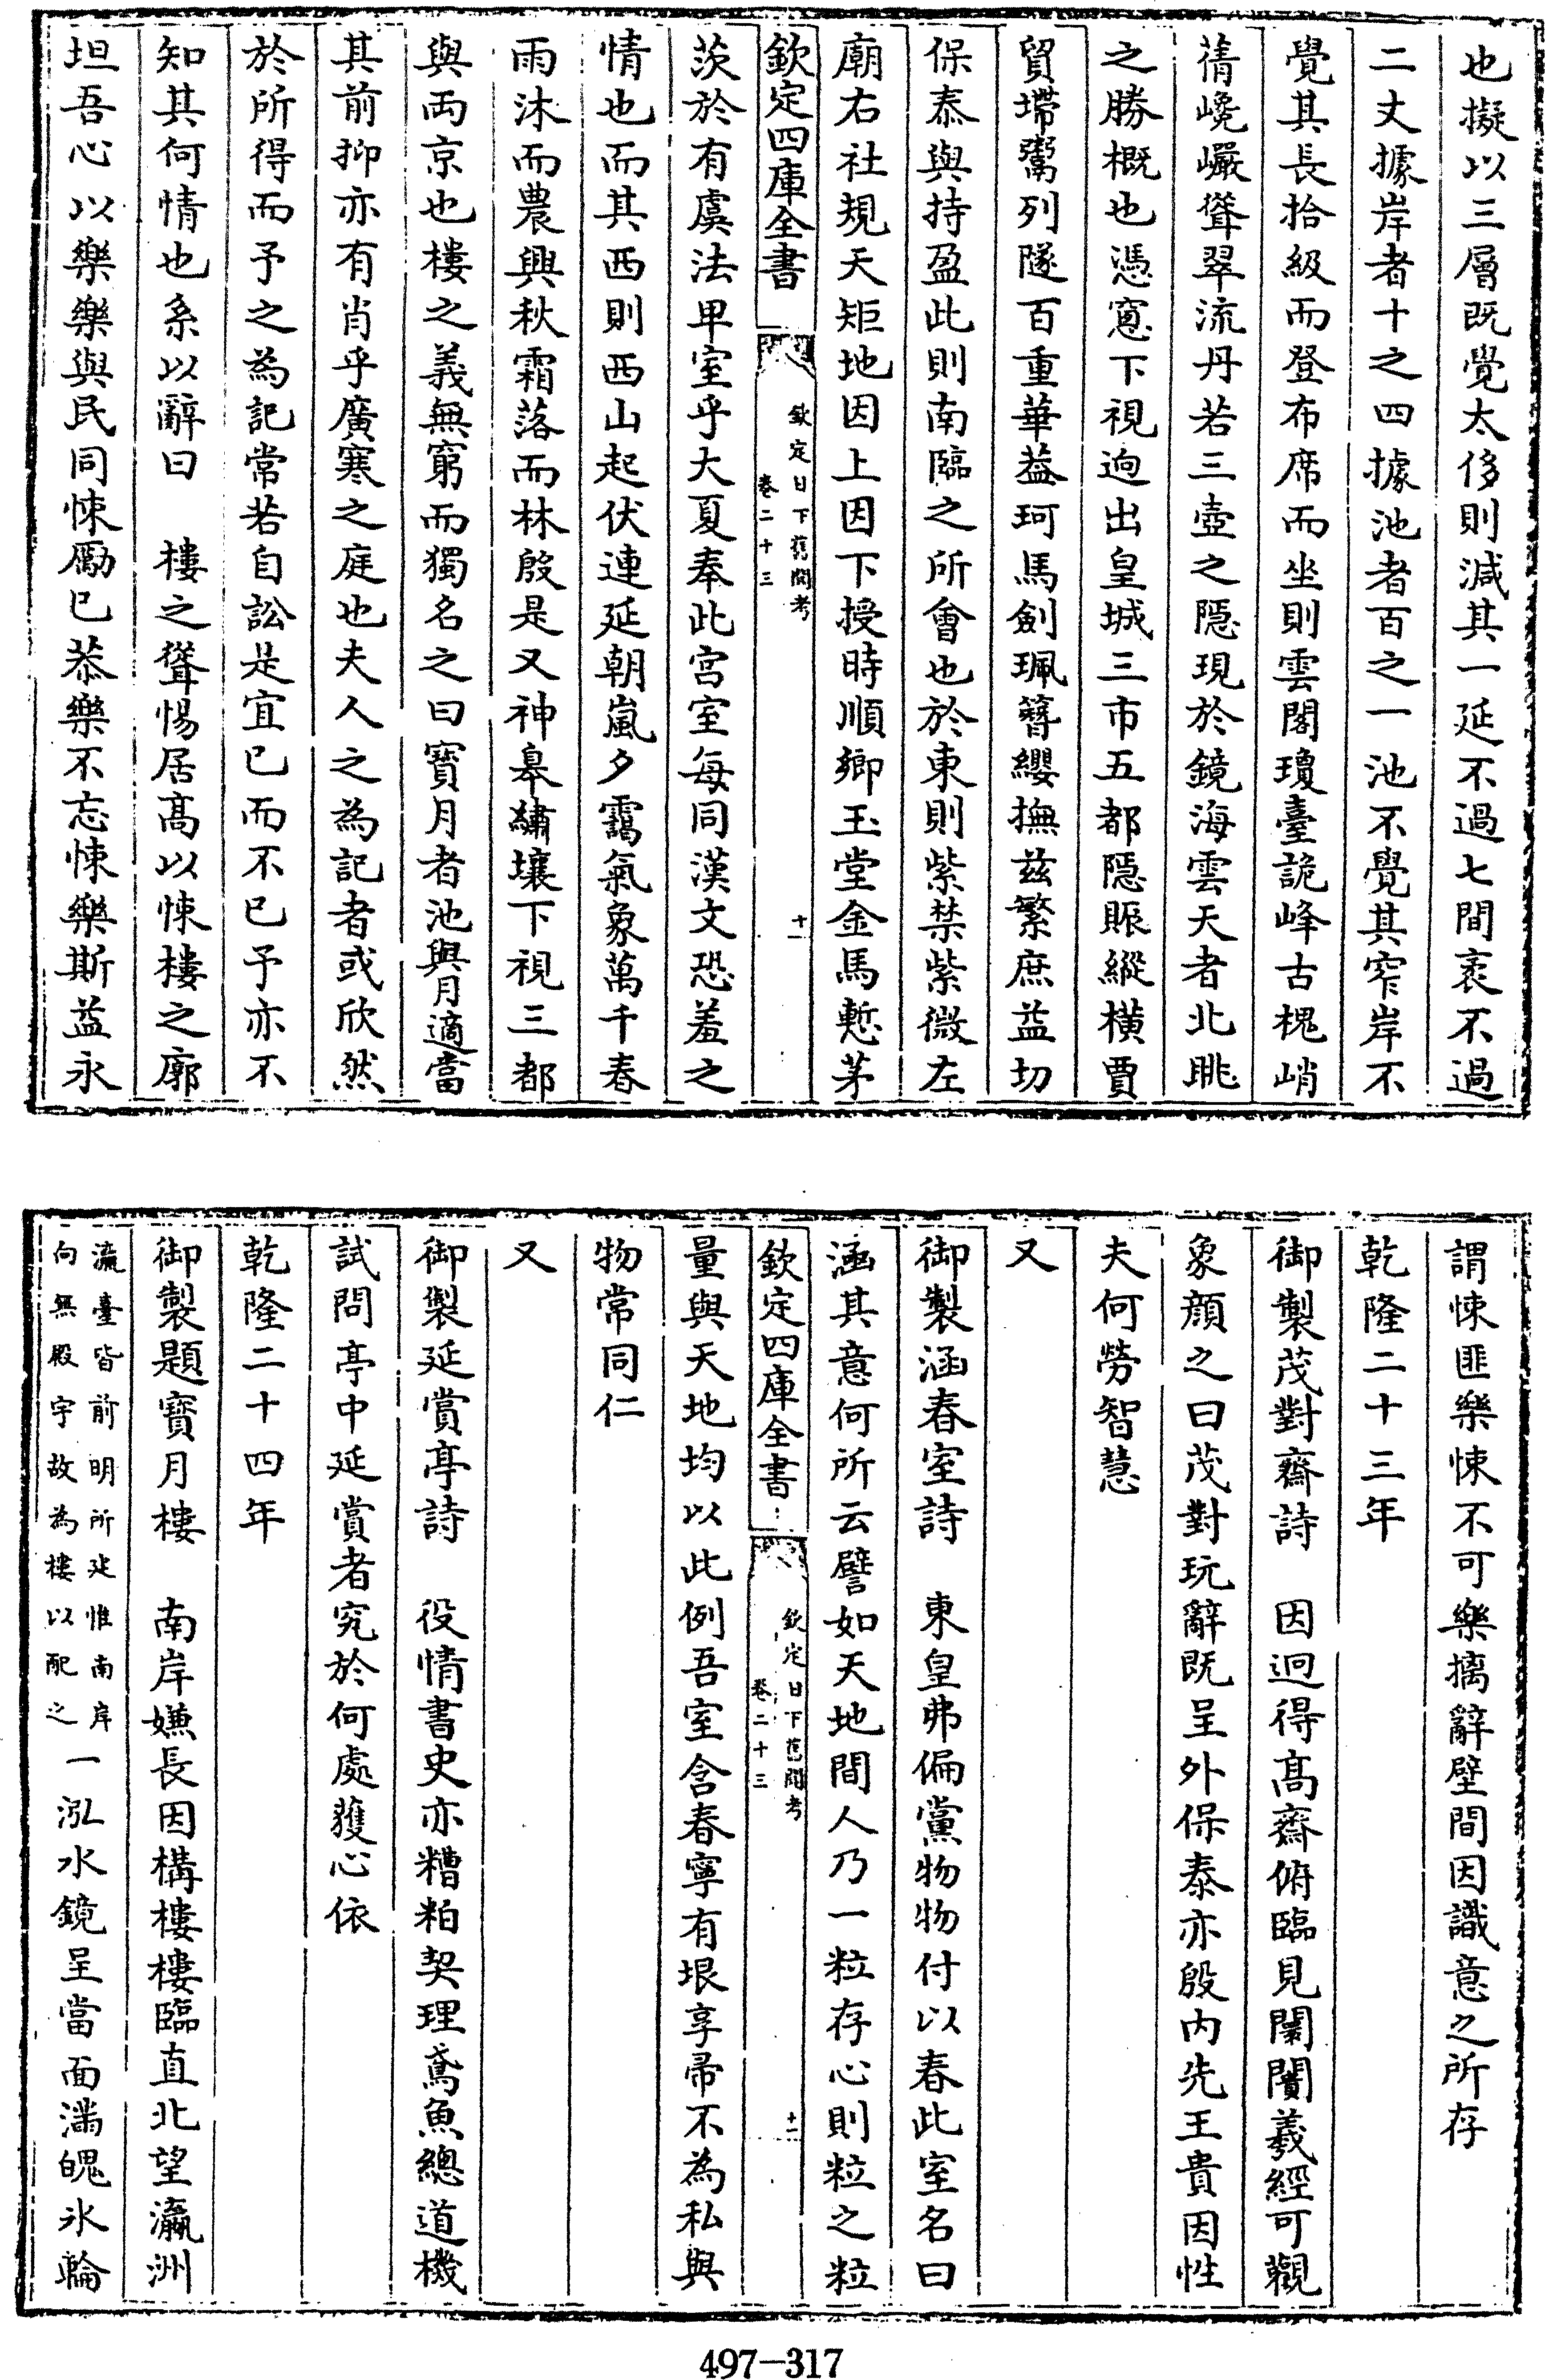 也擬以三層既覺太侈則減其一延不過七間袤不過
二丈據岸者十之四據池者百之一池不覺其窄岸不
覺其長拾級而登布席而坐則雲閣瓊臺詭峰古槐峭
蒨巉巗聳翠流丹若三壺之隱現於鏡海雲天者北眺
之勝概也憑窻下視逈出皇城三市五都隱賑縱横賈
貿墆鬻列隧百重華葢珂馬劍珮簪纓撫兹繁庶益切
保泰與持盈此則南臨之所會也於東則紫禁紫微左
廟右社規天矩地因上因下授時順鄉玉堂金馬慙茅
欽定四庫全書
欽定日下舊聞考
卷二十三
十一
茨於有虞法卑室乎大夏奉此宫室每同漢文恐羞之
情也而其西則西山起伏連延朝嵐夕靄氣象萬千春
雨沐而農興秋霜落而林殷是又神臯繡壤下視三都
與兩京也樓之義無窮而獨名之曰寳月者池與月適當
其前抑亦有肖乎廣寒之庭也夫人之為記者或欣然
於所得而予之為記常若自訟是宜已而不已予亦不
知其何情也系以辭曰　樓之聳惕居髙以悚樓之廓
坦吾心以樂樂與民同悚勵已恭樂不忘悚樂斯益永
謂悚匪樂悚不可樂摛辭壁間因識意之所存
乾隆二十三年
御製茂對齋詩　因逈得髙齋俯臨見闤闠羲經可觀
象顔之曰茂對玩辭既呈外保泰亦殷内先王貴因性
夫何勞智慧
又
御製涵春室詩　東皇弗偏黨物物付以春此室名曰
涵其意何所云譬如天地間人乃一粒存心則粒之粒
欽定四庫全書
欽定日下舊聞考
卷二十三
十二
量與天地均以此例吾室含春寧有垠享帚不為私與
物常同仁
又
御製延賞亭詩　役情書史亦糟粕契理鳶魚總道機
試問亭中延賞者究於何處獲心依
乾隆二十四年
御製題寳月樓　南岸嫌長因構樓樓臨直北望瀛洲
瀛臺皆前明所建惟南岸
向無殿宇故為樓以配之一泓水鏡呈當面滿魄氷輪
497-317